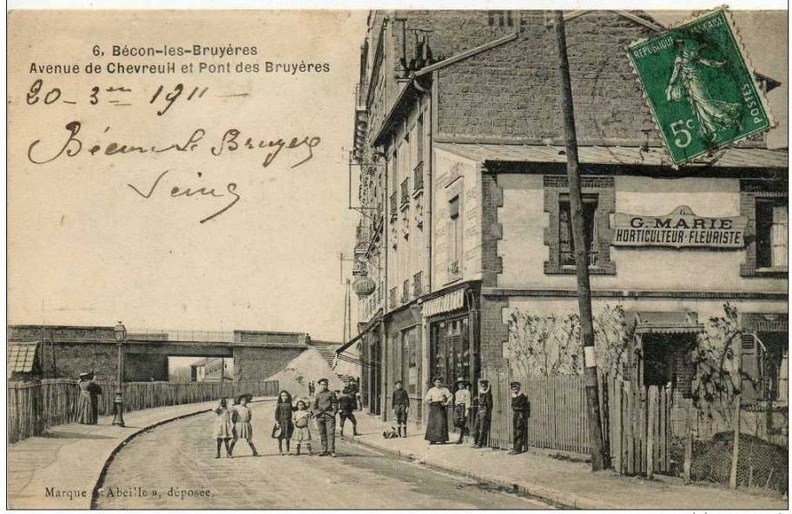 6. Bécon-les-Bruyères
Avenue de Chevreul et Pont des Bruyères
20 - 3 - 1911
Bécon Le Bruyers
Seine
REPUBLIQUE FRANÇAISE
POSTES
5c
G. MARIE
HORTICULTEUR-FLEURISTE
Marque "Abeille", déposée.